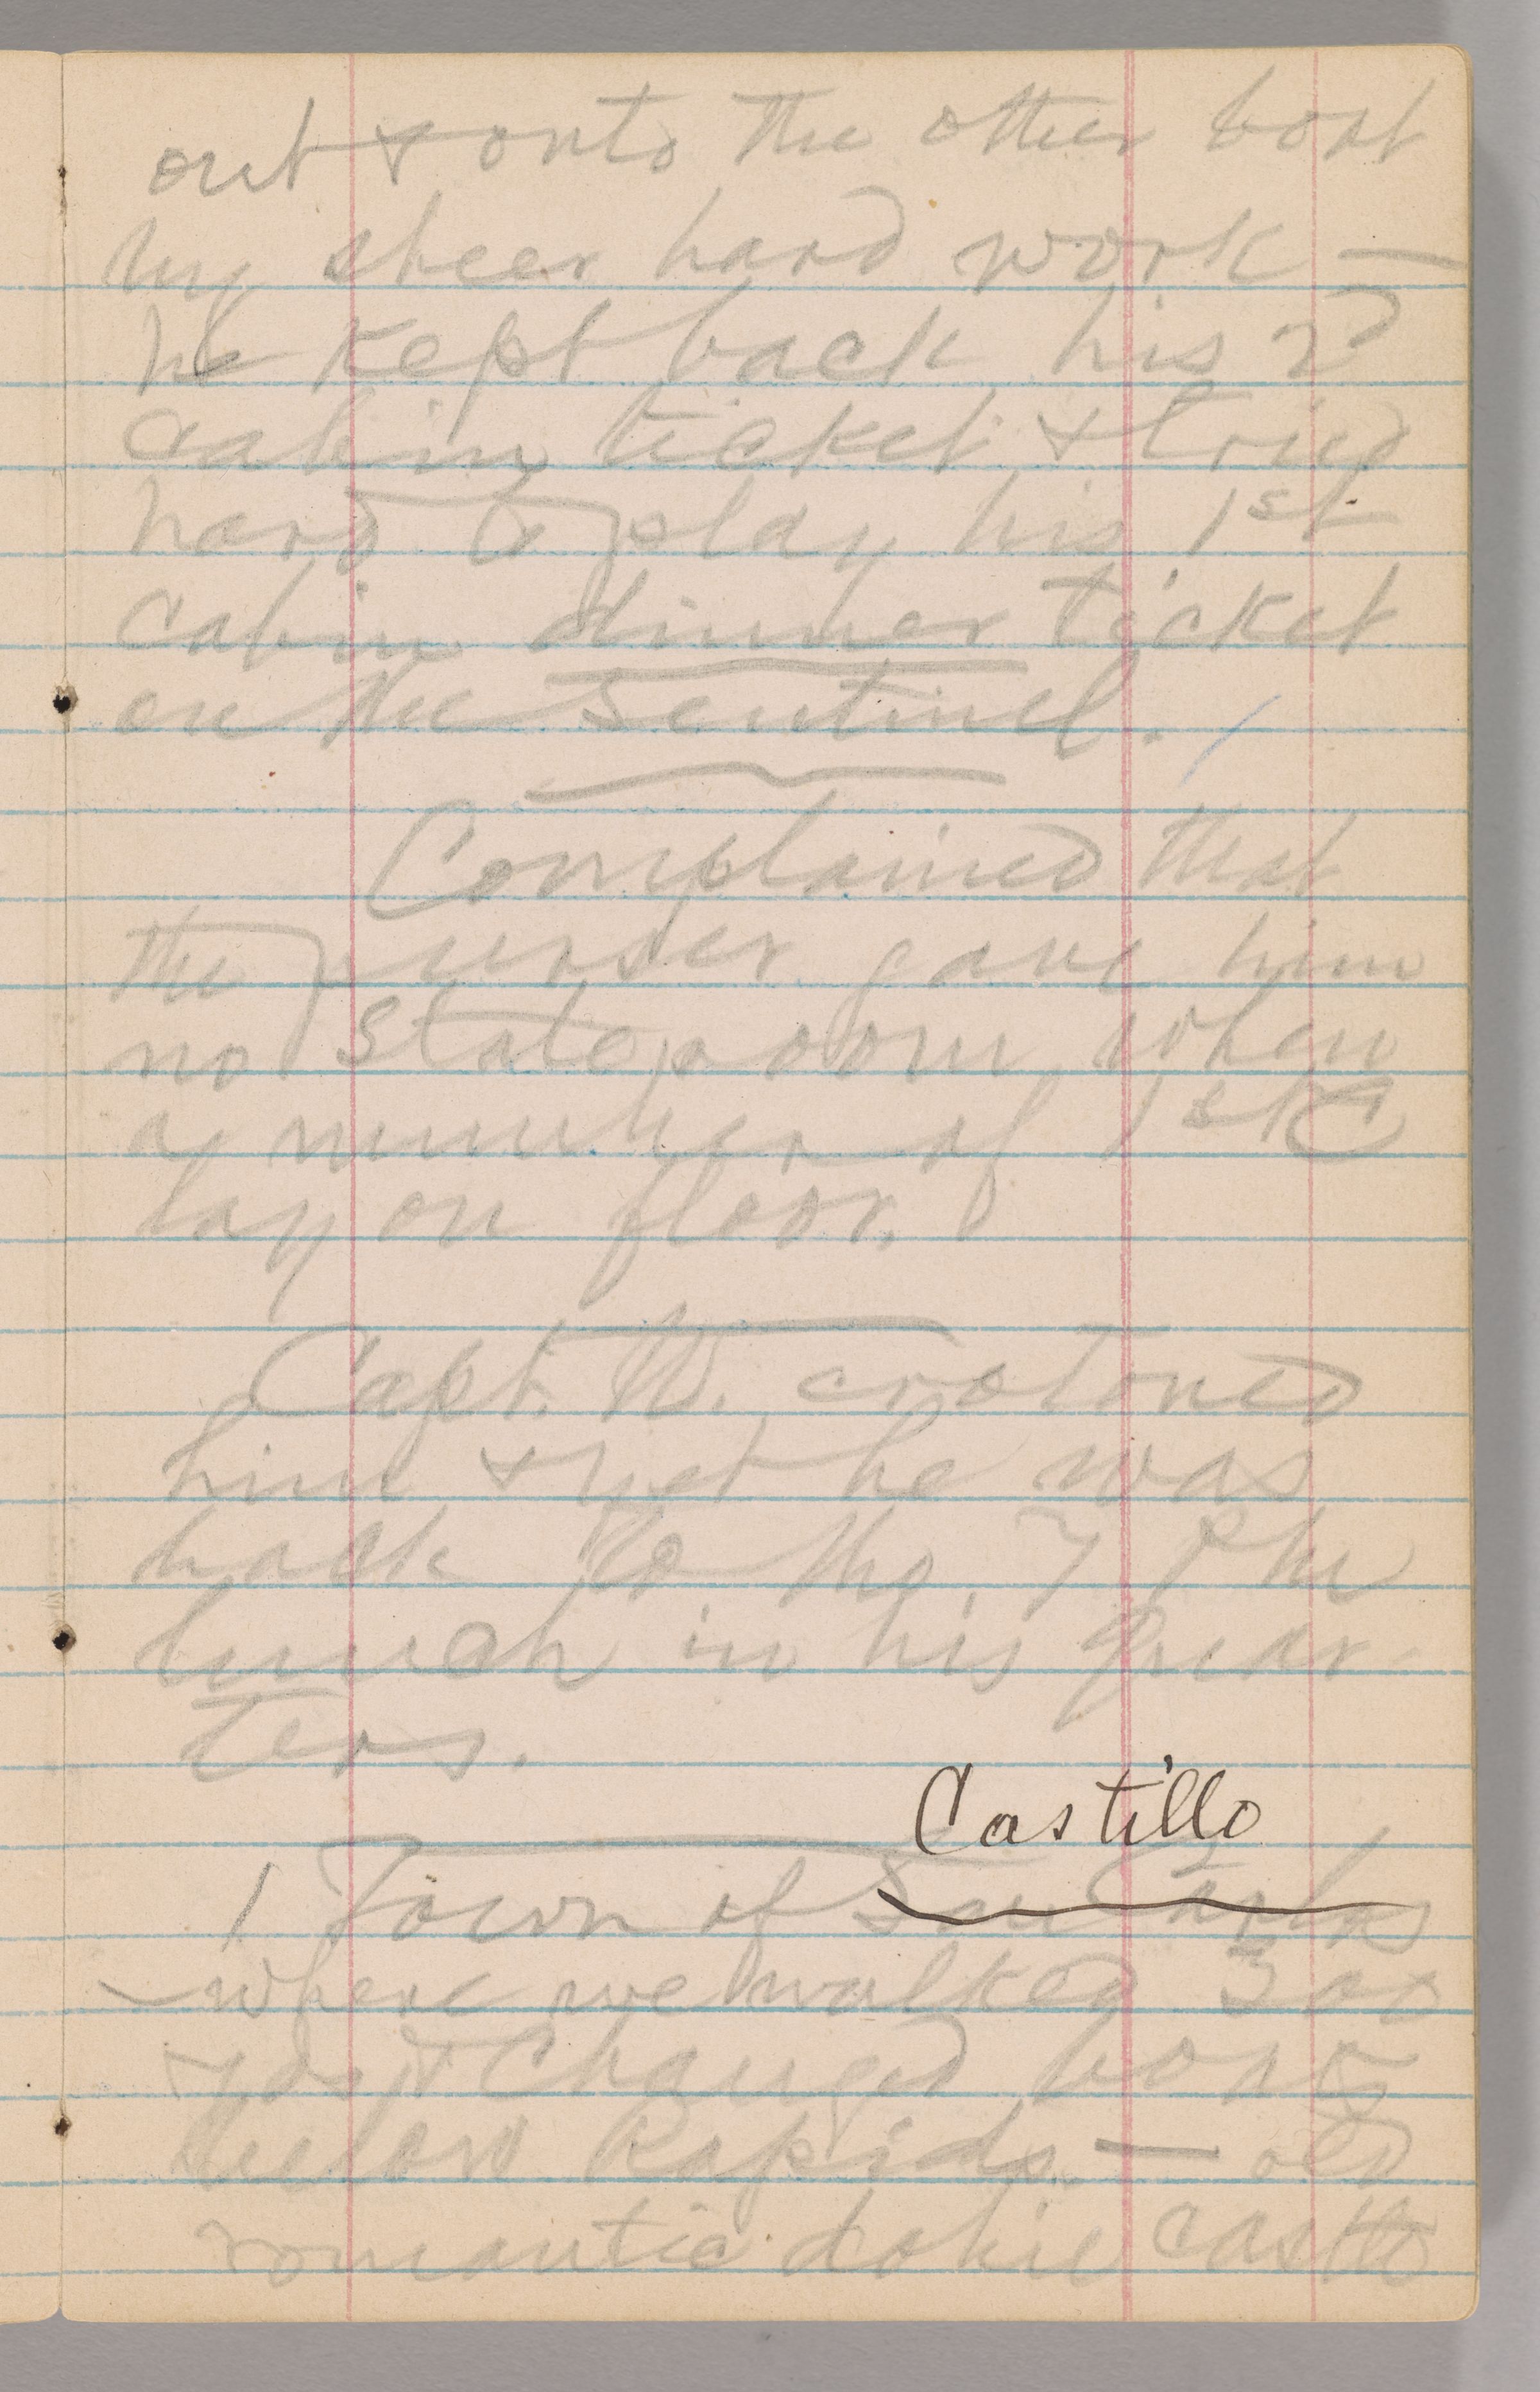 out & onto the other boat
by sheer hard work —
he kept back his 2d
cabin ticket & tried
hard to play his 1st
cabin dinner ticket
on the Sentinel.
Complained that
the purser gave him
no stateroom when
a number of 1st C
lay on floor.
Capt. W. crotoned
him & yet he was
back to the
lunch in his quar-
ters.
Castillo
Town of San Carlos
where we walked 300
yds & changed boats
below Rapids — old
romantic dobie castle